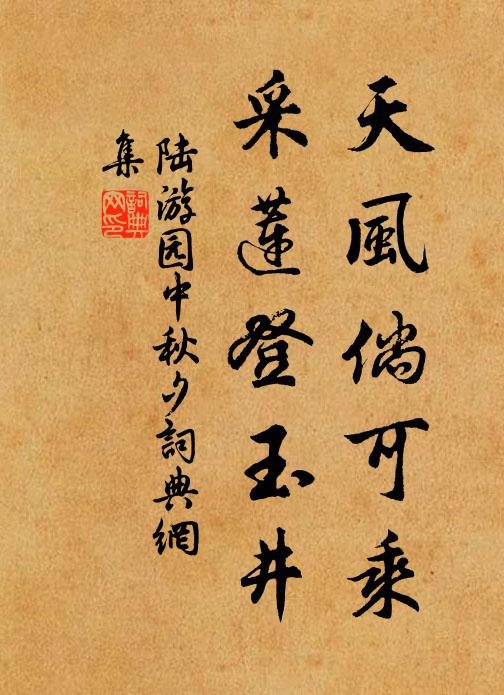 天風倘可乘
采蓮登玉井
陆游园中秋夕詞典網
集
詞典
网印